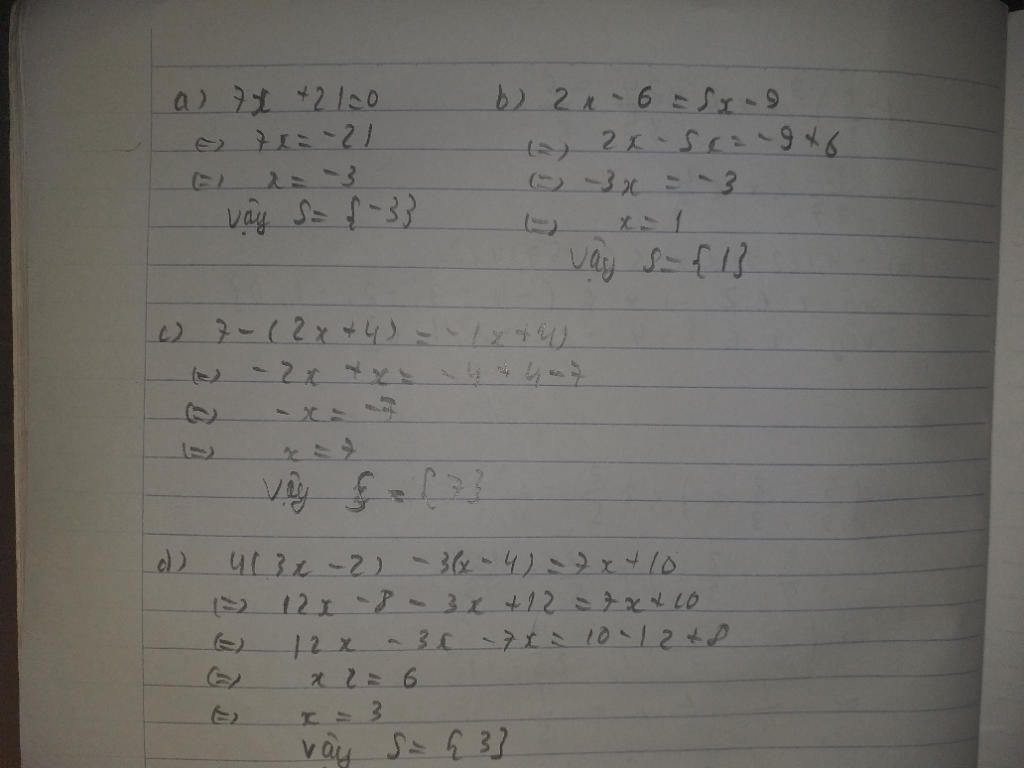 a) 7x +21=0
(=) 7x = -21
(=) x = -3
Vậy S = {-3}
b) 2x - 6 = 5x - 9
(=) 2x - 5x = -9 + 6
(=) -3x = -3
(=) x = 1
Vậy S = {1}
c) 7 - (2x + 4) = -(x + 4)
(=) -2x + x = -4 + 4 - 7
(=) -x = -7
(=) x = 7
Vậy S = {7}
d) 4(3x - 2) - 3(x - 4) = 7x + 10
(=) 12x - 8 - 3x + 12 = 7x + 10
(=) 12x - 3x - 7x = 10 - 12 + 8
(=) x 2 = 6
(=) x = 3
Vậy S = {3}